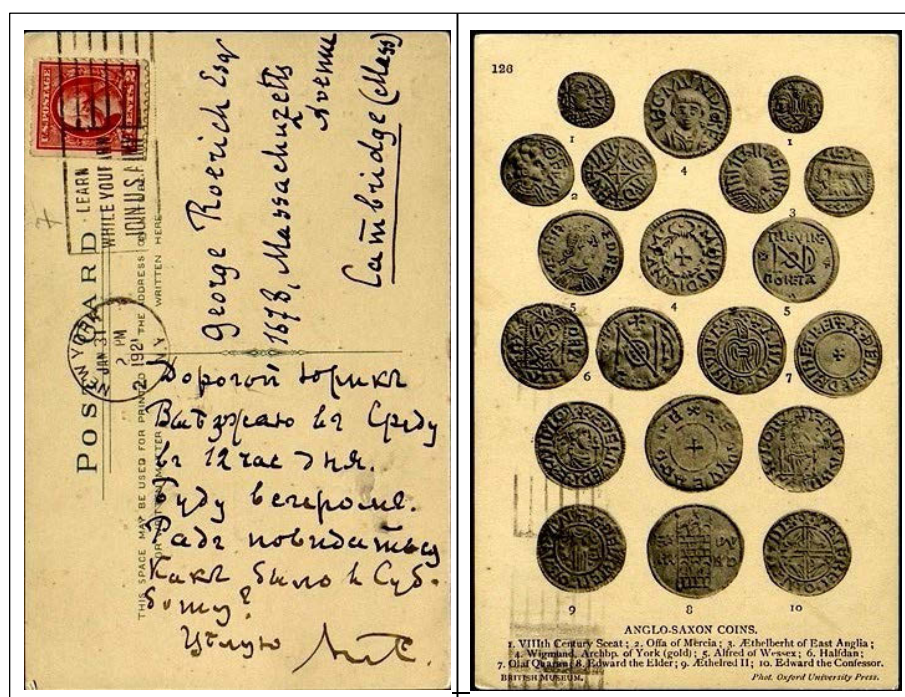 POST CARD
THIS SPACE MAY BE USED FOR PRINTED
THE ADDRESS
WRITTEN HERE
U.S. POSTAGE
CENTS 2
LEARN
WHILE YOU
JOIN U.S.
NEW YORK
JAN 31
2 PM
1921
N.Y.
7
George Roerich Esqr
1678, Massachuzetts
Avenue
Cambridge (Mass)
Дорогой Юрикъ
Выѣзжаю въ Среду
въ 12 час дня.
Буду вечеромъ.
Радъ повидаться
Какъ было в Суб-
боту?
Цѣлую
126
1
4
1
2
3
5
4
5
6
7
9
8
10
ANGLO-SAXON COINS.
1. VIIIth Century Sceat; 2. Offa of Mercia; 3. Æthelberht of East Anglia;
4. Wigmund, Archbp. of York (gold); 5. Alfred of Wessex; 6. Halfdan;
7. Olaf Quaran; 8. Edward the Elder; 9. Æthelred II; 10. Edward the Confessor.
BRITISH MUSEUM. Phot. Oxford University Press.